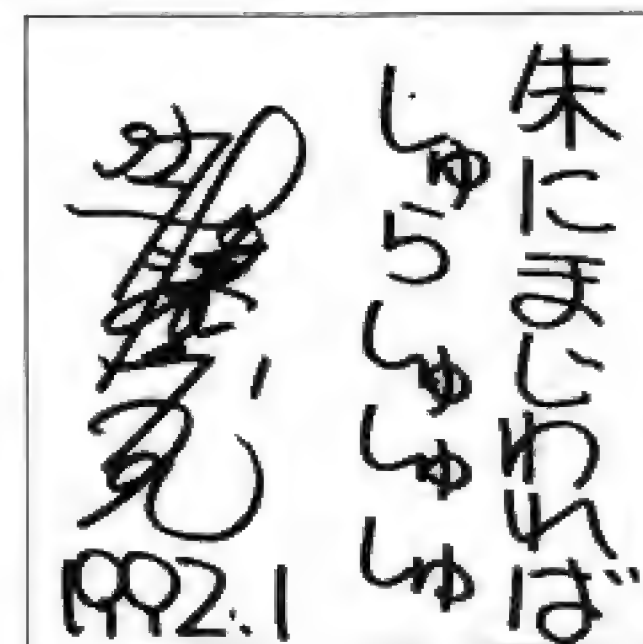 朱にまじわれば
しゅらしゅしゅしゅ
1992.1